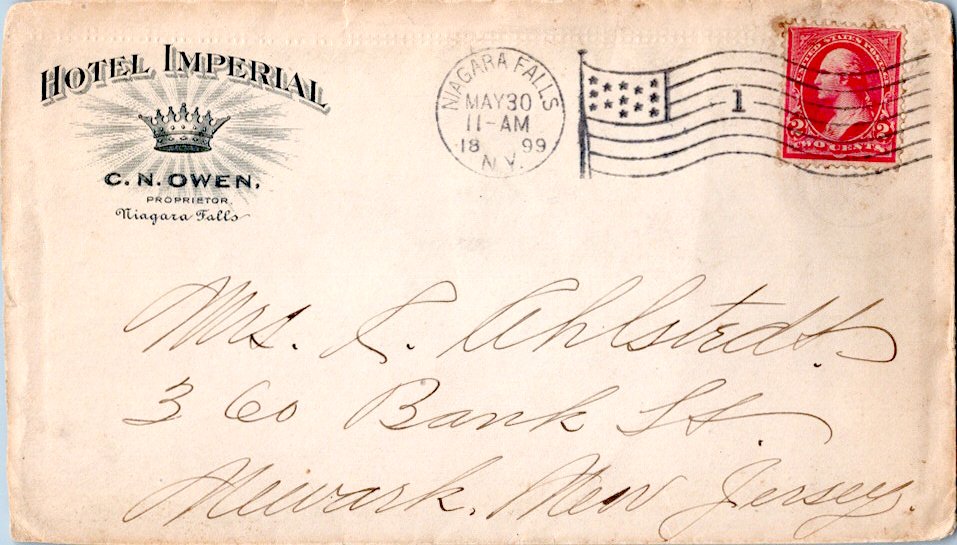 HOTEL IMPERIAL
C. N. OWEN,
PROPRIETOR.
Niagara Falls
NIAGARA FALLS
MAY 30
11-AM
18 99
N.Y.
1
UNITED STATES POSTAGE
2 2
TWO CENTS
Mrs. R. Ahlstedt.
360 Bank St.
Newark, New Jersey.